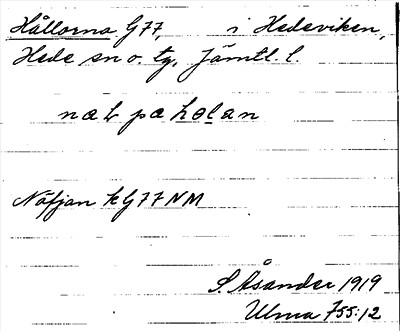 Hållorna G77, i Hedeviken,
Hede sn o. tg, Jämtl. l.
næt pa hɵlan
Näfjan k G77 NM
S. Åsander 1919
Ulma 755:12